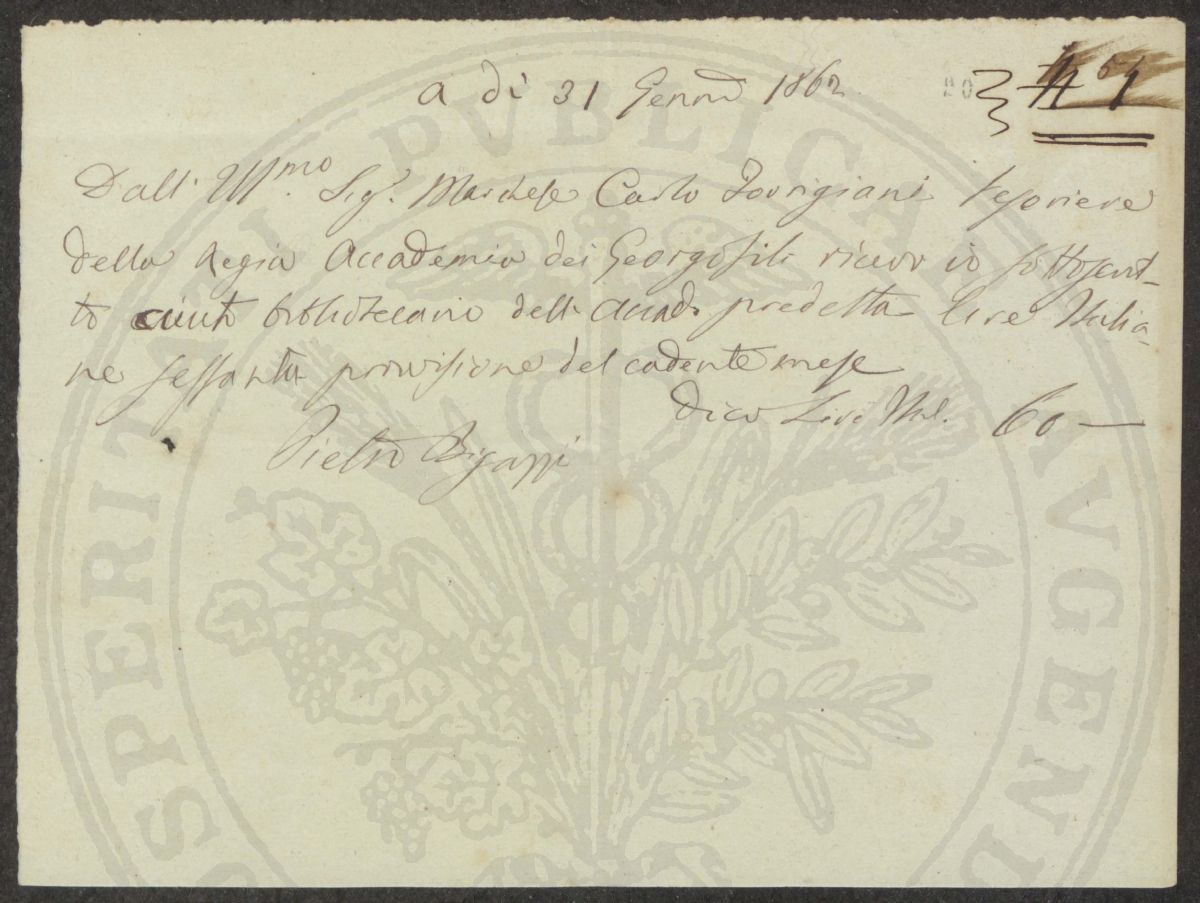 a dì 31 Genn.º 1862
20
Dall' Ill.mo Sig.r Marchese Carlo Torrigiani Tesoriere
della Regia Accademia dei Georgofili ricevo io sottoscrit-
to aiuto bibliotecario dell' Accad. predetta lire Italia-
ne sessanta provvisione del cadente mese
dico Lire Ital. 60 —
Pietro Bigazzi
PROSPERITATI PVBLICAE AVGENDAE